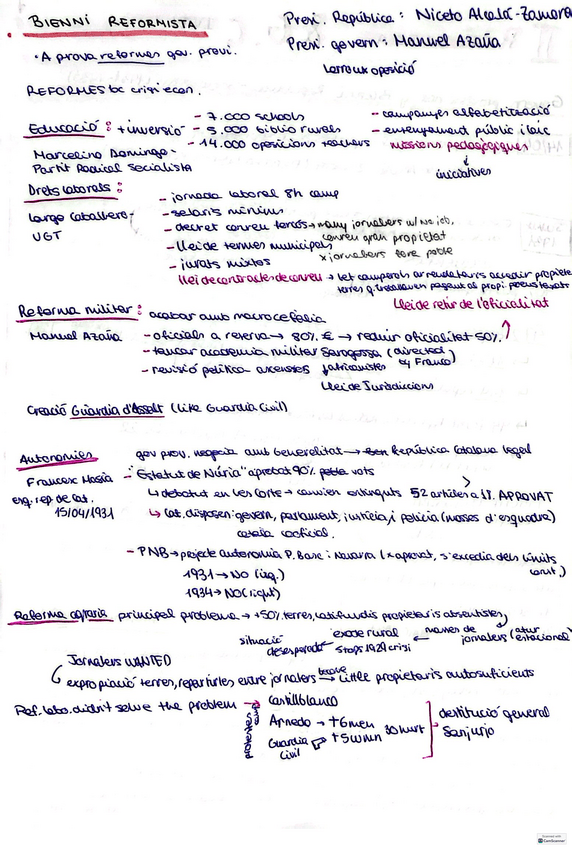 BIENNI REFORMISTA
Presi. República: Niceto Alcalá-Zamora
Presi. govern: Manuel Azaña
Lerroux oposició
· A prova reformes gov. provi.
REFORMES bc crisi econ.
Educació: + inversió
- 7.000 schools
- 5.000 biblio rurals
- 14.000 oposicions teachers
- campanyes alfabetització
- ensenyament públic i laic
missions pedagògiques
iniciatives
Marcelino Domingo -
Partit Radical Socialista
Drets laborals:
Largo Caballero -
UGT
- jornada laboral 8h camp
- salaris mínims
- decret conreu forçós → many jornalers w/ no job,
conreu gran propietat
- llei de termes municipals
x jornalers fora poble
- jurats mixtos
llei de contractes de conreu → let camperols arrendataris accedir propietat
terres q. treballaven pagant al propi.
Reforma militar: acabar amb macrocefàlia
Manuel Azaña
- oficials a reserva → 80% € → reduir oficialitat 50%.
Llei de retir de l'oficialitat
- tancar acadèmia militar Saragossa (directed by Franco)
- revisió política ascensos africanistes
Llei de Jurisdiccions
Creació Guàrdia d'Assalt (like Guardia Civil)
Autonomies
gov prov. negocia amb Generalitat → República Catalana legal
Francesc Macià
esq. rep de Cat.
15/04/1931
- "Estatut de Núria" aprobat 90% vots
↳ debatut en les Corts → canvien continguts 52 articles a 18. APROVAT
↳ Cat. disposen: govern, parlament, justícia, i policia (mossos d'esquadra)
català cooficial.
- PNB → projecte autonomia P. Basc i Navarra (x aprovat, s'excedia dels límits const.)
1931 → NO (izq.)
1934 → NO (right)
Reforma agrària principal problema → +50% terres, latifundis propietaris absentistes
masses de jornalers (atur estacional)
← èxode rural
stops 1929 crisi
situació desesperada
Jornalers WANTED
expropiació terres, repartirles entre jornalers → little propietaris autosuficients
Ref. labo. didn't solve the problem →
protestes
Castilblanco
Arnedo → +6 men
Guardia Civil
+5 women 30 hurt
destitució general
Sanjurjo
CamScanner